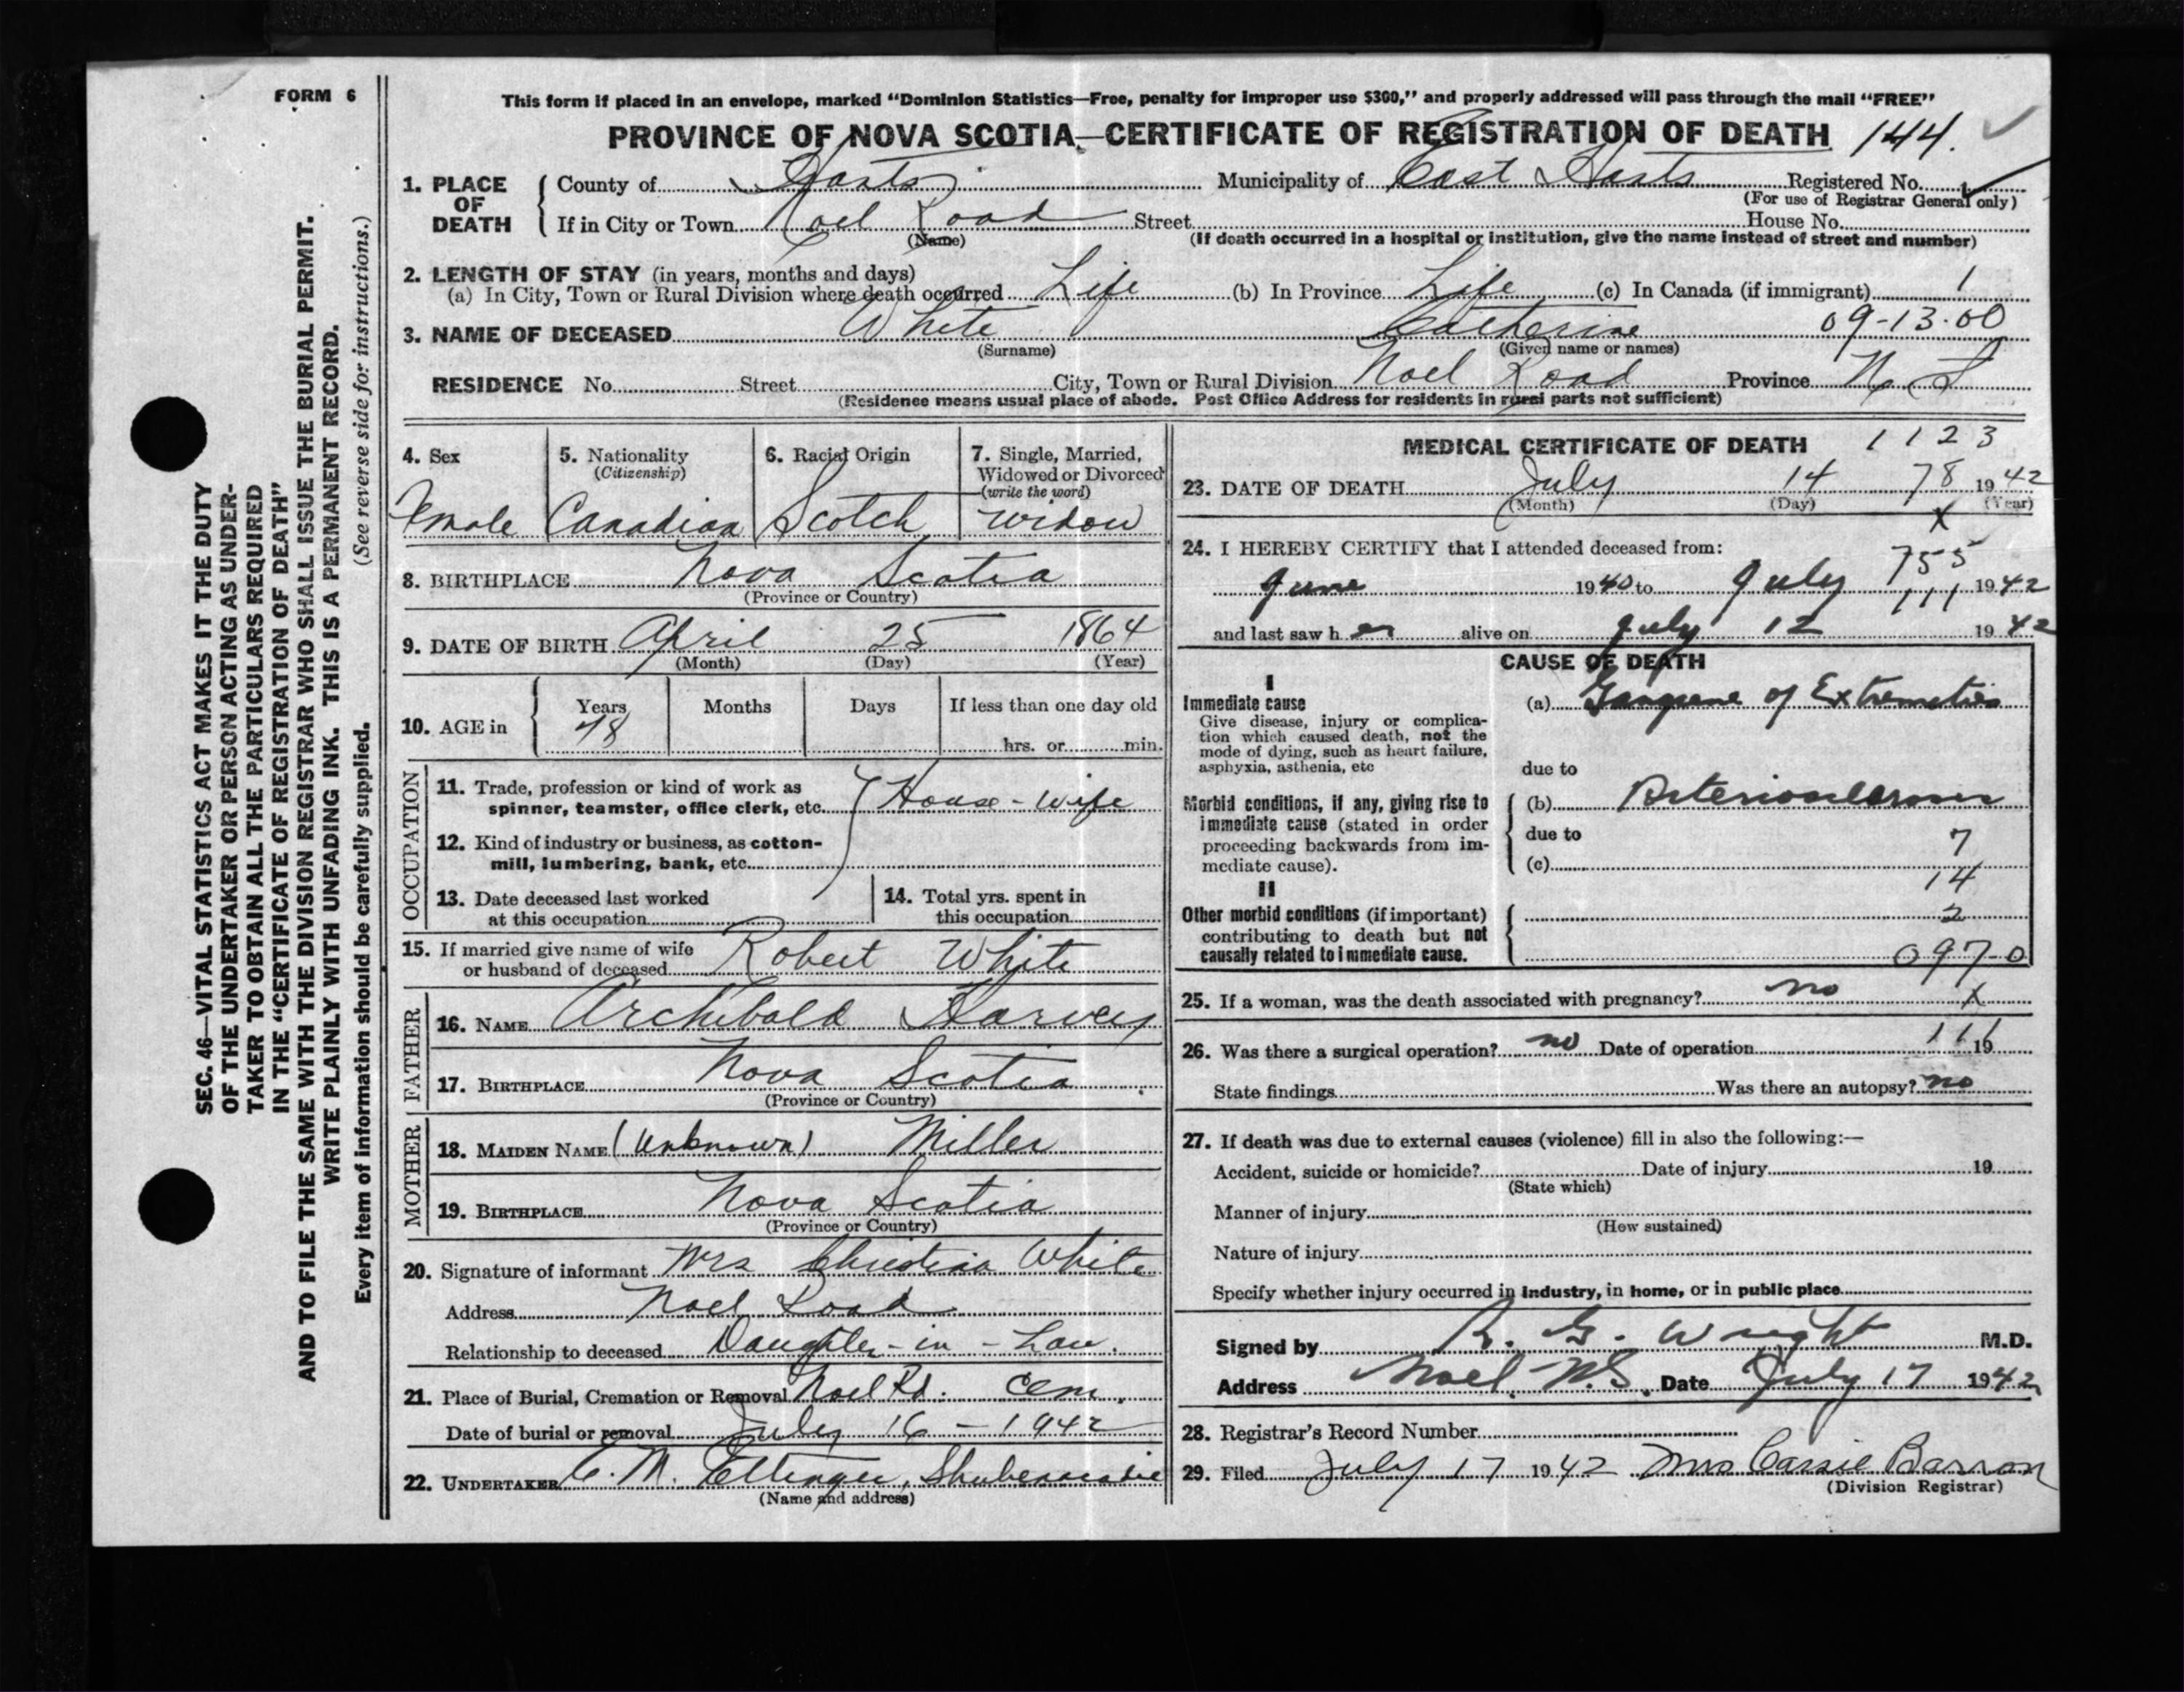 FORM 6
This form if placed in an envelope, marked "Dominion Statistics—Free, penalty for improper use $300," and properly addressed will pass through the mail "FREE"
PROVINCE OF NOVA SCOTIA—CERTIFICATE OF REGISTRATION OF DEATH 144.
1. PLACE OF DEATH County of Hants Municipality of East Hants Registered No.
(For use of Registrar General only)
If in City or Town Noel Road Street House No.
(Name) (If death occurred in a hospital or institution, give the name instead of street and number)
2. LENGTH OF STAY (in years, months and days)
(a) In City, Town or Rural Division where death occurred Life (b) In Province Life (c) In Canada (if immigrant) 1
3. NAME OF DECEASED White Catherine 09-13-00
(Surname) (Given name or names)
RESIDENCE No. Street City, Town or Rural Division Noel Road Province N. S.
(Residence means usual place of abode. Post Office Address for residents in rural parts not sufficient)
4. Sex 5. Nationality 6. Racial Origin 7. Single, Married,
(Citizenship) Widowed or Divorced
(write the word)
Female Canadian Scotch Widow
8. BIRTHPLACE Nova Scotia
(Province or Country)
9. DATE OF BIRTH April 25 1864
(Month) (Day) (Year)
10. AGE in Years Months Days If less than one day old
78 hrs. or min.
OCCUPATION
11. Trade, profession or kind of work as
spinner, teamster, office clerk, etc. House-wife
12. Kind of industry or business, as cotton-
mill, lumbering, bank, etc.
13. Date deceased last worked
at this occupation
14. Total yrs. spent in
this occupation
15. If married give name of wife
or husband of deceased Robert White
FATHER
16. NAME Archibald Harvey
17. BIRTHPLACE Nova Scotia
(Province or Country)
MOTHER
18. MAIDEN NAME (Unknown) Miller
19. BIRTHPLACE Nova Scotia
(Province or Country)
20. Signature of informant Mrs Christina White
Address Noel Road
Relationship to deceased Daughter-in-Law.
21. Place of Burial, Cremation or Removal Noel Rd. Cem.
Date of burial or removal July 16-1942
22. UNDERTAKER C. M. Ettinger, Shubenacadie
(Name and address)
MEDICAL CERTIFICATE OF DEATH 1123
23. DATE OF DEATH July 14 78 1942
(Month) (Day) (Year)
X
24. I HEREBY CERTIFY that I attended deceased from:
755
June 1940 to July 1942
111
and last saw her alive on July 12 1942
CAUSE OF DEATH
I
Immediate cause (a) Gangrene of Extremeties
Give disease, injury or complica-
tion which caused death, not the
mode of dying, such as heart failure,
asphyxia, asthenia, etc
due to
Morbid conditions, if any, giving rise to (b) Arteriosclerosis
immediate cause (stated in order
proceeding backwards from im-
mediate cause).
due to
7
(c)
14
II
Other morbid conditions (if important) 2
contributing to death but not
causally related to immediate cause. 097-0
25. If a woman, was the death associated with pregnancy? no X
26. Was there a surgical operation? no Date of operation 111 19
State findings Was there an autopsy? no
27. If death was due to external causes (violence) fill in also the following:—
Accident, suicide or homicide? Date of injury 19
(State which)
Manner of injury
(How sustained)
Nature of injury
Specify whether injury occurred in industry, in home, or in public place
Signed by R. G. Wright M.D.
Address Noel, N.S. Date July 17 1942
28. Registrar's Record Number
29. Filed July 17 1942 Mrs Cassie Barron
(Division Registrar)
SEC. 46—VITAL STATISTICS ACT MAKES IT THE DUTY
OF THE UNDERTAKER OR PERSON ACTING AS UNDER-
TAKER TO OBTAIN ALL THE PARTICULARS REQUIRED
IN THE "CERTIFICATE OF REGISTRATION OF DEATH"
AND TO FILE THE SAME WITH THE DIVISION REGISTRAR WHO SHALL ISSUE THE BURIAL PERMIT.
WRITE PLAINLY WITH UNFADING INK. THIS IS A PERMANENT RECORD.
Every item of information should be carefully supplied. (See reverse side for instructions.)